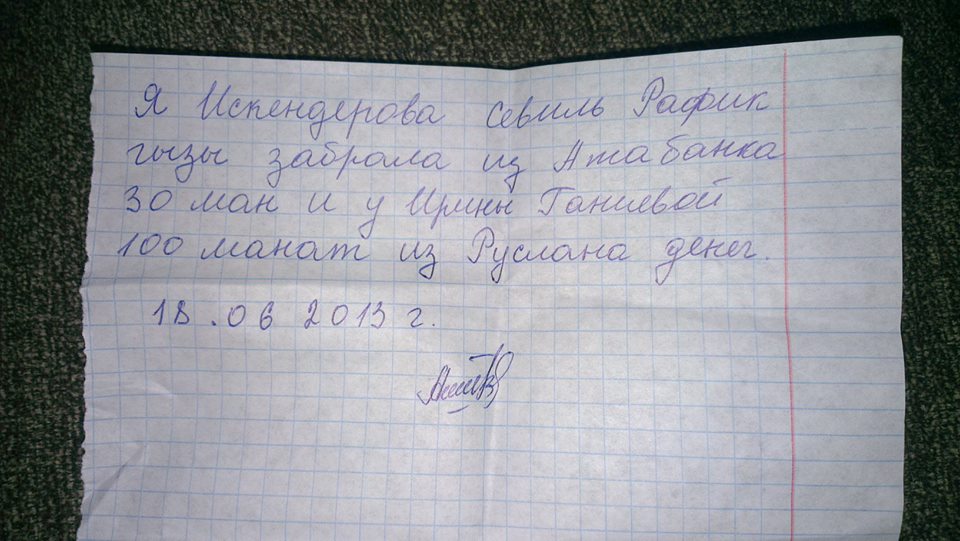 Я Искендерова Севиль Рафик
гызы забрала из Атабанка
30 ман и у Ирины Ганиевой
100 манат из Руслана денег.
18.06 2013 г.